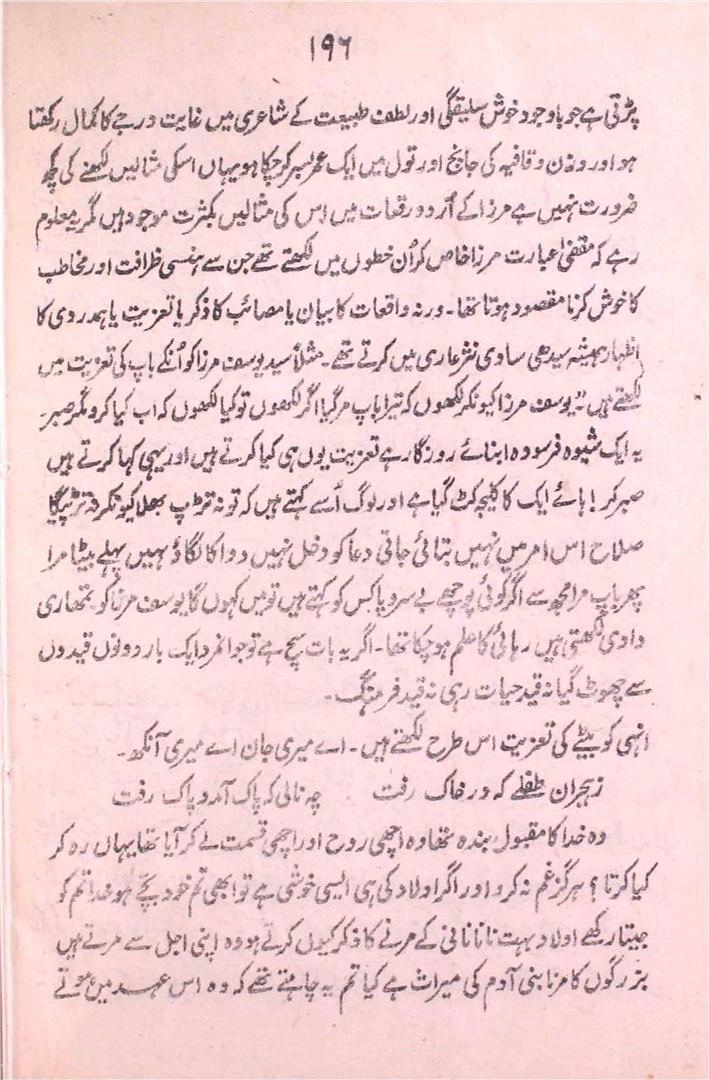 ۱۹۶
پڑتی ہے جو باوجود خوش سلیقگی اور لطف طبیعت کے شاعری میں غایت درجے کا کمال رکھتا
ہو اور وزن و قافیہ کی جانچ اور تول میں ایک عمر بسر کر چکا ہو یہاں اسکی مثالیں لکھنے کی کچھ
ضرورت نہیں ہے مرزا کے اُردو رقعات میں اس کی مثالیں بکثرت موجود ہیں مگر یہ معلوم
رہے کہ مقفیٰ عبارت مرزا خاص کر اُن خطوں میں لکھتے تھے جن سے ہنسی ظرافت اور مخاطب
کا خوش کرنا مقصود ہوتا تھا۔ ورنہ واقعات کا بیان یا مصائب کا ذکر یا تعزیت یا ہمدردی کا
اظہار ہمیشہ سیدھی سادی نثر عاری میں کرتے تھے۔ مثلاً سید یوسف مرزا کو اُنکے باپ کی تعزیت میں
لکھتے ہیں "یوسف مرزا کیونکر لکھوں کہ تیرا باپ مر گیا اگر لکھوں تو کیا لکھوں کہ اب کیا کرو مگر صبر۔
یہ ایک شیوہ فرسودہ ابنائے روزگار ہے تعزیت یوں ہی کیا کرتے ہیں اور یہی کہا کرتے ہیں
صبر کر! ہائے ایک کا کلیجہ کٹ گیا ہے اور لوگ اُسے کہتے ہیں کہ تو نہ تڑپ بھلا کیونکر نہ تڑپیگا
صلاح اس امر میں نہیں بتائی جاتی دعا کو دخل نہیں دوا کا لگاؤ نہیں پہلے بیٹا مرا
پھر باپ مرا مجھ سے اگر کوئی پوچھے بے سر و پا کس کو کہتے ہیں تو میں کہوں گا یوسف مرزا کو تمھاری
دادی لکھتی ہیں رہائی کا حکم ہو چکا تھا۔ اگر یہ بات سچ ہے تو جوانمرد ایک بار دونوں قیدوں
سے چھوٹ گیا نہ قید حیات رہی نہ قید فرہنگ۔
انہی کو بیٹے کی تعزیت اس طرح لکھتے ہیں۔ اے میری جان اے میری آنکھ۔
زہجران طفلے کہ در خاک رفت چہ نالی کہ پاک آمد و پاک رفت
وہ خدا کا مقبول بندہ تھا وہ اچھی روح اور اچھی قسمت لے کر آیا تھا یہاں رہ کر
کیا کرتا ؟ ہرگز غم نہ کرو اور اگر اولاد کی ہی ایسی خوشی ہے تو ابھی تم خود بچے ہو خدا تم کو
جیتا رکھے اولاد بہت نانا نانی کے مرنے کا ذکر کیوں کرتے ہو وہ اپنی اجل سے مرتے ہیں
بزرگوں کا مرنا بنی آدم کی میراث ہے کیا تم یہ چاہتے تھے کہ وہ اس عہد میں ہوتے